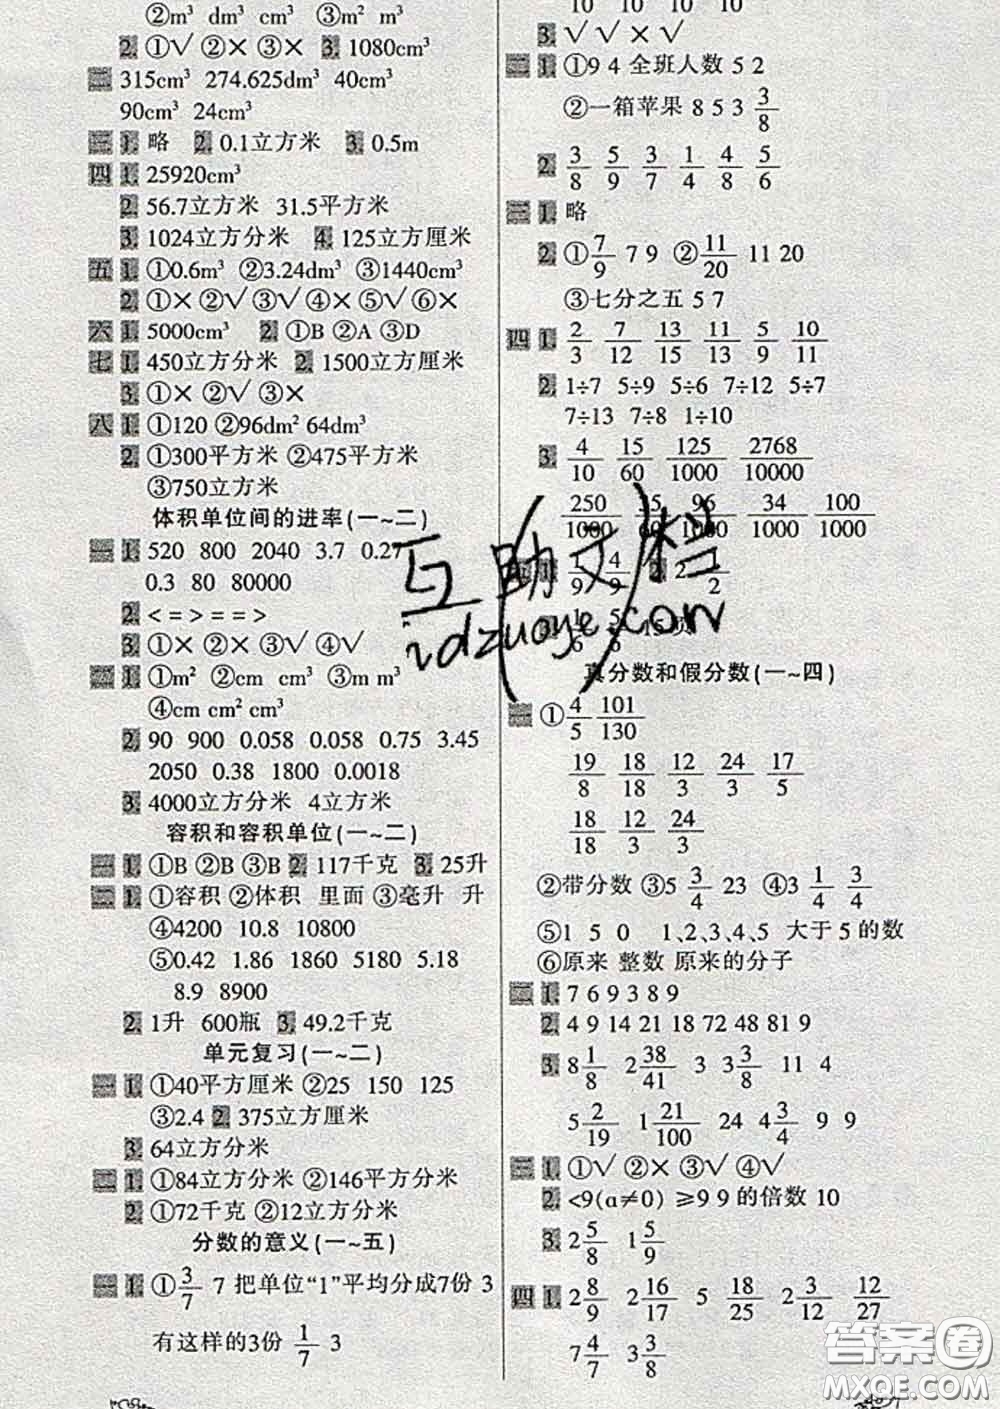 ②m³ dm³ cm³ ③m³
2. ①√ ②× ③× 3. 1080cm³
二 315cm³ 274.625dm³ 40cm³
90cm³ 24cm³
三 1. 略 2. 0.1立方米 3. 0.5m
四 1. 25920cm³
2. 56.7立方米 31.5平方米
3. 1024立方分米 4. 125立方厘米
五 1. ①0.6m³ ②3.24dm³ ③1440cm³
2. ①× ②√ ③√ ④× ⑤√ ⑥×
六 1. 5000cm³ 2. ①B ②A ③D
七 1. 450立方分米 2. 1500立方厘米
3. ①× ②√ ③×
八 1. ①120 ②96dm² 64dm³
2. ①300平方米 ②475平方米
③750立方米
体积单位间的进率(一~二)
一 1. 520 800 2040 3.7 0.27
0.3 80 80000
2. < = > = = >
3. ①× ②× ③√ ④√
二 1. ①m² ②cm cm³ ③m m³
④cm cm² cm³
2. 90 900 0.058 0.058 0.75 3.45
2050 0.38 1800 0.0018
3. 4000立方分米 4立方米
容积和容积单位(一~二)
一 1. ①B ②B ③B 2. 117千克 3. 25升
二 1. ①容积 ②体积 里面 ③毫升 升
④4200 10.8 10800
⑤0.42 1.86 1860 5180 5.18
8.9 8900
2. 1升 600瓶 3. 49.2千克
单元复习(一~二)
一 1. ①40平方厘米 ②25 150 125
③2.4 2. 375立方厘米
3. 64立方分米
二 1. ①84立方分米 ②146平方分米
2. ①72千克 ②12立方分米
分数的意义(一~五)
一 1. ①3/7 7 把单位“1”平均分成7份 3
有这样的3份 1/7 3
10 10 10 10
3. √ √ × √
二 1. ①9 4 全班人数 5 2
②一箱苹果 8 5 3 3/8
2. 3/8 5/9 3/7 1/4 4/8 5/6
三 1. 略
2. ①7/9 7 9 ②11/20 11 20
③七分之五 5 7
四 1. 2/3 7/12 13/15 11/13 5/9 10/11
2. 1÷7 5÷9 5÷6 7÷12 5÷7
7÷13 7÷8 1÷10
3. 4/10 15/60 125/1000 2768/10000
250/1000 15/60 96/1000 34/1000 100/1000
1. 1/9 4/9 2. 2 1/2
1/6 5/6 15页
真分数和假分数(一~四)
一 ①4/5 101/130
19/8 18/18 12/3 24/3 17/5
18/18 12/3 24/3
②带分数 ③5 3/4 23 ④3 1/4 3/4
⑤1 5 0 1、2、3、4、5 大于5的数
⑥原来 整数 原来的分子
二 1. 7 6 9 3 8 9
2. 4 9 14 21 18 72 48 81 9
3. 8 1/8 2 38/41 3 3 3/8 11 4
5 2/19 1 21/100 24 4 3/4 9 9
三 1. ①√ ②× ③√ ④√
2. <9(a≠0) ≥9 9的倍数 10
3. 2 5/8 1 5/9
四 1. 2 8/9 2 16/17 5 18/25 2 3/12 12/27
7 4/7 3 3/8
互助文档
idzuoye.com
答案圈
MXQE.COM